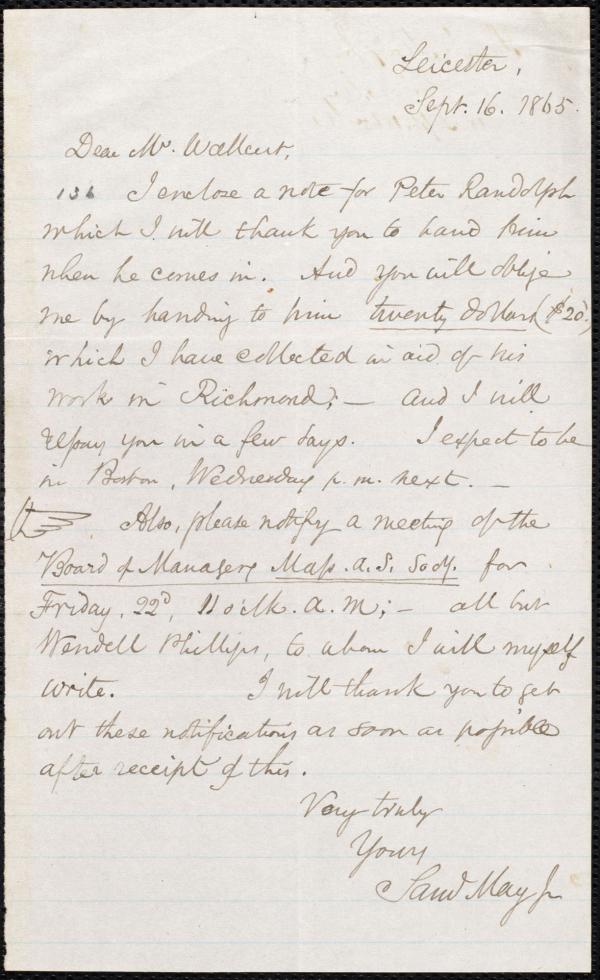 Leicester,
Sept. 16. 1865.
Dear Mr. Wallcut,
136 I enclose a note for Peter Randolph
which I will thank you to hand him
when he comes in. And you will oblige
me by handing to him twenty dollars ($20.)
which I have collected in aid of his
work in Richmond; — and I will
repay you in a few days. I expect to be
in Boston, Wednesday p. m. next. —
☞ Also, please notify a meeting of the
Board of Managers Mass. A. S. Socy. for
Friday, 22d, 11 o'clk. a. m; — all but
Wendell Phillips, to whom I will myself
write. I will thank you to get
out these notifications as soon as possible
after receipt of this.
Very truly
Yours
Saml May Jr